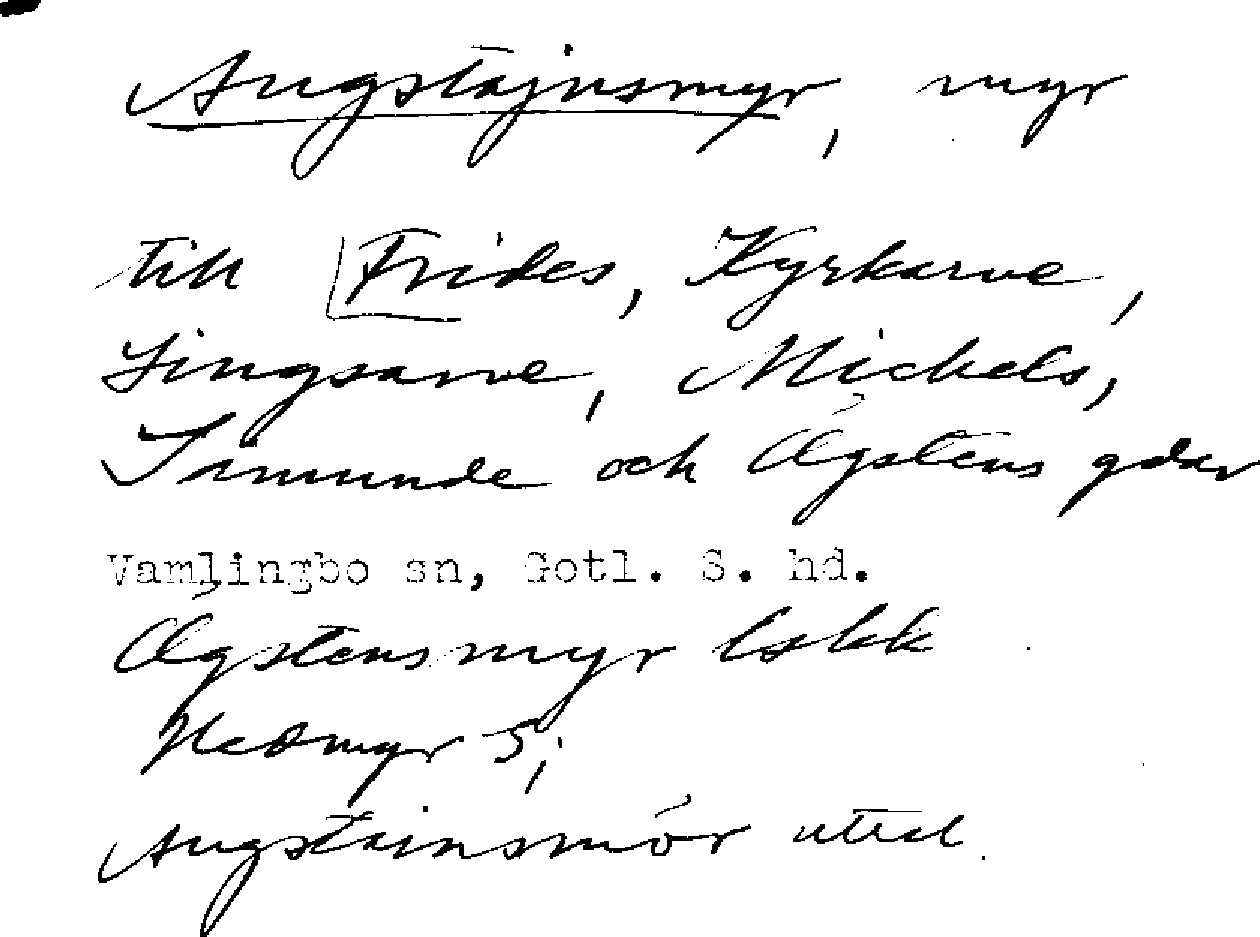 Augstajnsmyr, myr
till Frides, Kyrkarve,
Lingsarve, Mickels,
Snmunde och Ögstens gdar
Vamlingbo sn, Gotl. S. hd.
Ögstensmyr
myr 5;
Augstainsmör uttal